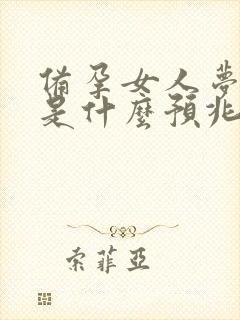 備孕女人夢
是什麼預兆
索菲亞